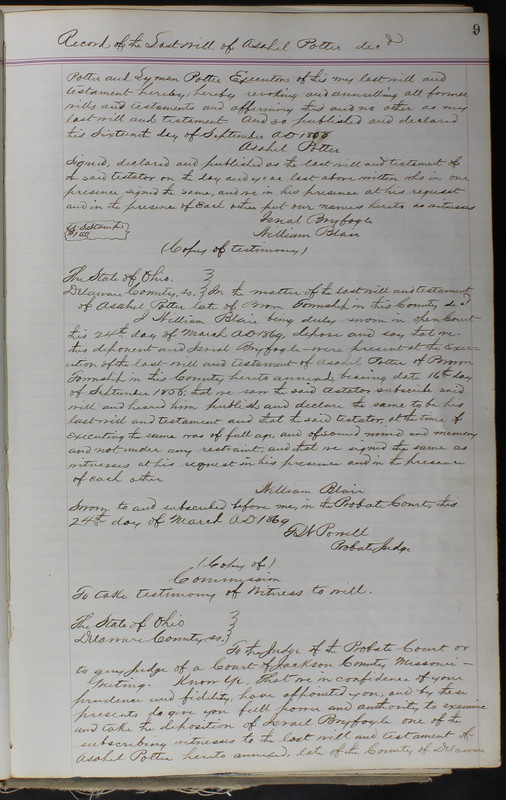 9
Record of the Last will of Asahel Potter dec'd
Potter and Lyman Potter Executors of this my last will and
testament hereby, hereby revoking and annulling all former
wills and testaments and affirming this and no other as my
last will and testament And so published and declared
this Sixteenth day of September AD
Asahel Potter
Signed, declared and published as the last will and testament of
the said testator on the day and year last above written who in our
presence signed the same, and we in his presence at his request
and in the presence of Each other put our names hereto as witnesses
Isreal Bryfogle
U.S. Stamps
William Blair
(Copy of testimony)
The State of Ohio.
Delaware County, ss. In the matter of the last will and testament
of Asahel Potter late of Brown Township in this County dec'd
I William Blair being duly sworn in open Court
this 24th day of March AD 1869, depose and say, that we
this deponent and Isreal Bryfogle were present at the Exec-
ution of the last will and testament of Asahel Potter of Brown
Township in this County hereto annexed, bearing date 16th day
of September, that we saw the said testator subscribe said
will and heard him publish and declare the same to be his
last will and testament and that the said testator, at the time of
executing the same was of full age, and of sound mind and memory
and not under any restraint, and that we signed the same as
witnesses at his request in his presence and in the presence
of each other
William Blair
Sworn to and subscribed before me, in the Probate Court, this
24th day of March AD 1869
Powell
Probate Judge
(Copy of)
Commission
To take testimony of Witness to will.
The State of Ohio
Delaware County, ss.
To the Judge of the Probate Court or
to any Judge of a Court of Jackson County Missouri -
Greeting. Know Ye, That we in confidence of your
prudence and fidelity, have appointed you, and by these
presents do give you full power and authority, to examine
and take the deposition of Israel Bryfogle one of the
subscribing witnesses to the last will and testament of
Asahel Potter hereto annexed, late of the County of Delaware